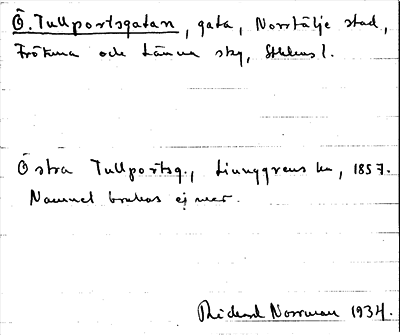 Ö. Tullportsgatan, gata, Norrtälje stad,
Frötuna och Länna sky, Sthlms l.
Östra Tullportsg., Ljunggrens ka, 1857.
Namnet brukas ej mer.
Rickard Norrman 1934.